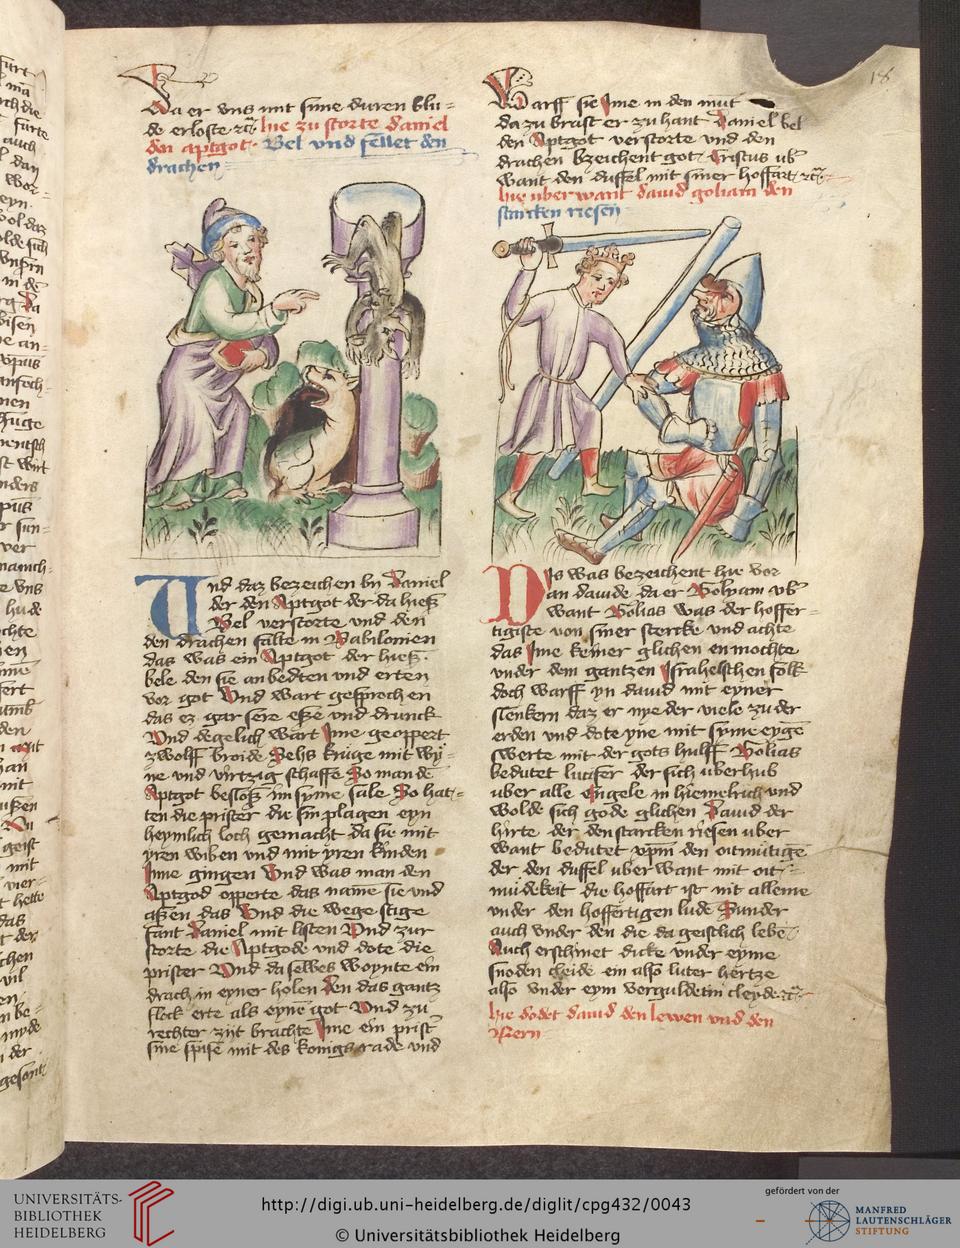 Da er vns mit sime duren blu=
de erloste ꝛc hie zu storte daniel
den aptgot Bel vnd fellet den
drachen
Vnd daz bezeichen by Daniel
der den Aptgot der da hieß
Bel verstorte vnd den
den drachen falte in Babilonien
das was ein Aptgot der hieß
bele den sie anbedten vnd erten
vor got Vnd wart gesprochen
das ez gar sere eße vnd drunck
Vnd degelich wart Ime geoppert
zwolff broide Sehs kruge mit wy=
ne vnd virtzig schaffe So man de
Aptgot besloß in syme sale So hat=
ten die prister die sin plagen eyn
heymlich loch gemacht da sie mit
yren wiben vnd mit yren kinden
Inne gingen Vnd was man den
Aptgod opperte das name sie vnd
aßen das Vnd die wege stige
fant Daniel mit listen Vnd zur
storte die Aptgode vnd dote die
prister Vnd da selbes woynte ein
drach in eyner holen Den das gantz
flock erte als eyne got Vnd zu
rechter zijt brachte Ime ein prist
sine spise mit des konigs rade vnd
18
Warff sie Ime in den mut
da zu brast er zu hant Daniel bel
den Aptgot verstorte vnd den
drachen bezeichent got Cristus vb
want den duffel mit siner hoffart ꝛc
hie vberwant dauid goliam den
starcken riesen
Dis was bezeichent hie vor
an dauide da er Golyam vb
want Golias was der hoffer=
tigiste von siner stercke vnd achte
das Ime keiner glichen en mochte
vnder dem gantzen Israhelschen folk
doch warff yn dauid mit eyner
slenkern daz er nyder viele zu der
erden vnd dote yne mit syme eyge
swerte mit der gots hulff Golias
bedutet lucifer der sich vberhub
vber alle Engele in hiemelrich vnd
wolde sich gode glichen Dauid der
hirte der den starcken riesen vber
want bedutet xpm den oitmutige
der den duffel vber want mit oit=
mudekeit die hoffart ist nit alleine
vnder den hoffertigen lude Sunder
auch vnder den die da geistlich lebe
Auch erschinet dicke vnder eyme
snoden cleide ein also luter hertze
also vnder eym verguldetin cleyde ꝛc
hie dodet dauid den lewen vnd den
Bern
UNIVERSITÄTS-
BIBLIOTHEK
HEIDELBERG
http://digi.ub.uni-heidelberg.de/diglit/cpg432/0043
© Universitätsbibliothek Heidelberg
gefördert von der
MANFRED
LAUTENSCHLÄGER
STIFTUNG